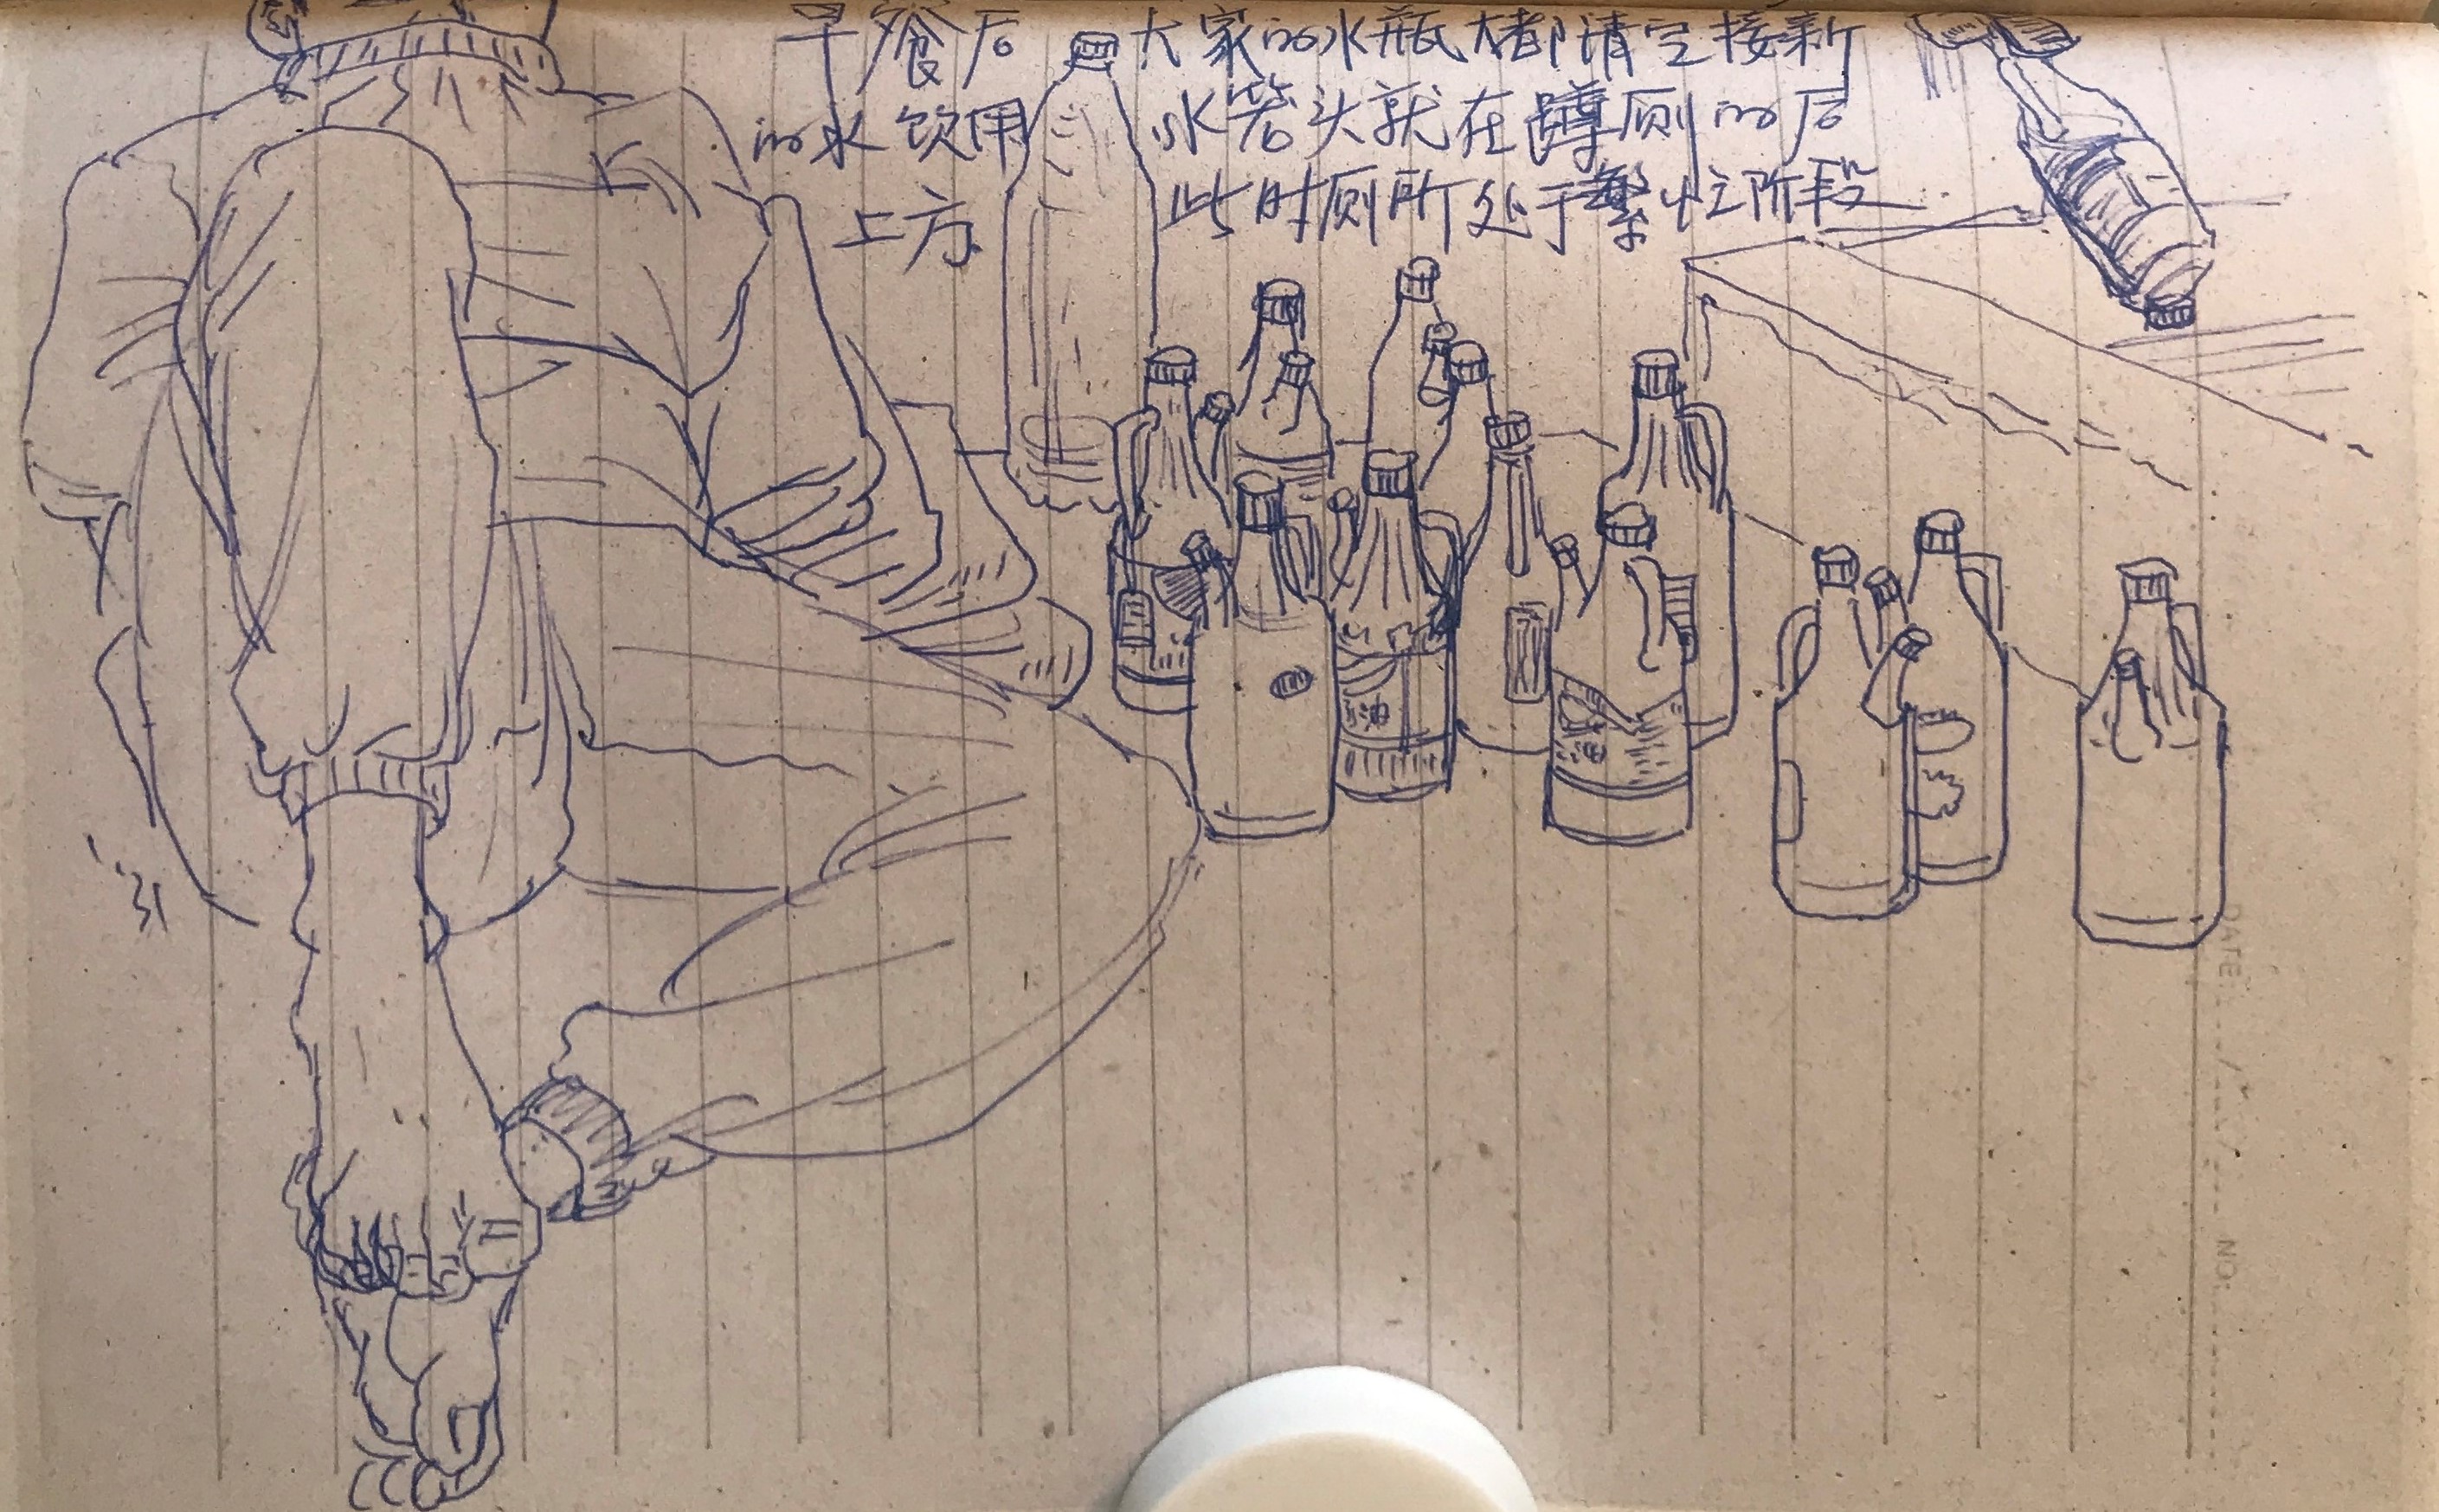 早餐后 大家的水瓶大都清空接新
的水饮用 水管头就在蹲厕的后
上方 此时厕所处于繁忙阶段
油
油
DATE
NO